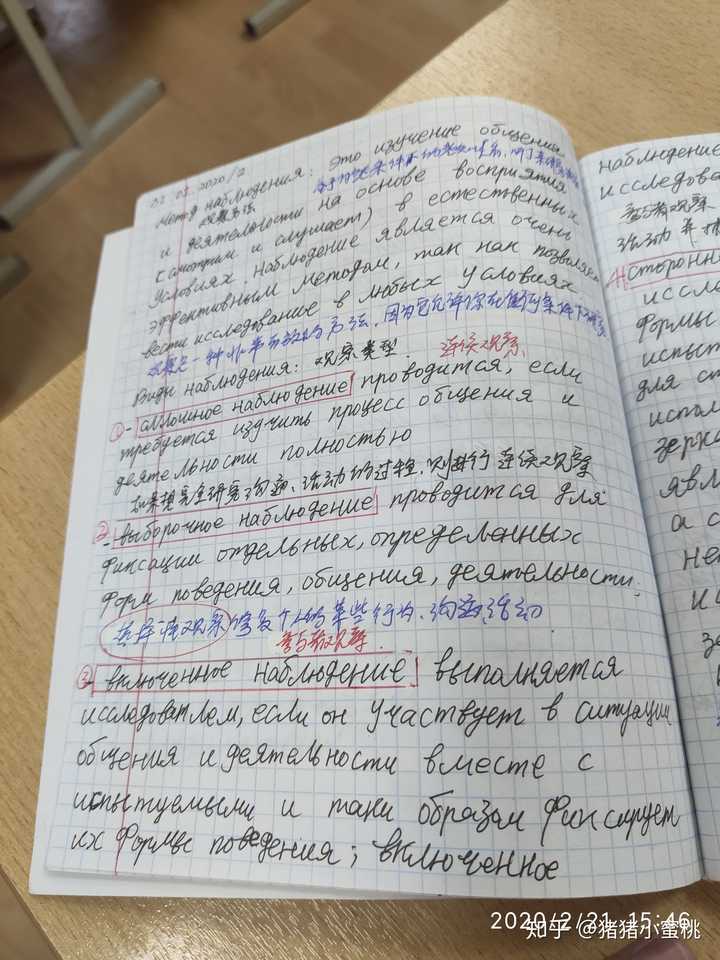 02 03. 2020/2
Метод наблюдения: это изучение общения
观察方法
и деятельности на основе восприятия
(смотрим и слушаем) в естественных
условиях. Наблюдение является очень
эффективным методом, так как позволяет
вести исследование в любых условиях
观察是一种非常有效的方法,因为它允许你在任何条件下
Виды наблюдения: 观察类型 连续观察
① - сплошное наблюдение проводится, если
требуется изучить процесс общения и
деятельности полностью
如果想完全研究沟通、活动的过程,则进行连续观察
② - выборочное наблюдение проводится для
фиксации отдельных, определенных
форм поведения, общения, деятельности.
选择性观察 某些行为、沟通、活动
参与观察.
③ - включенное наблюдение выполняется
исследователем, если он участвует в ситуации
общения и деятельности вместе с
испытуемыми и таки образом фиксирует
их формы поведения; включенное
наблюдение
исследова
参与观察
活动并
4) Сторонн
иссле
формы
испыт
для ст
испол
зерка
явл
а с
нет
ис
2020/2/21 15:46
知乎 @猪猪小蜜桃